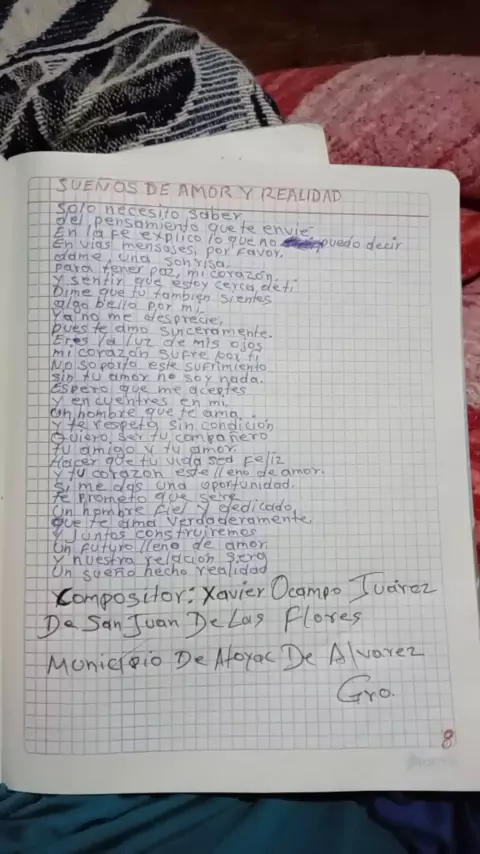 SUEÑOS DE AMOR Y REALIDAD
Solo necesito saber
del pensamiento que te envie
En la fe explico lo que no puedo decir
En vias mensajes, por favor,
dame, una sonrisa,
para tener paz, mi corazón,
y sentir que estoy cerca, de ti
Dime que tu tambien sientes
algo bello por mi,
Ya no me desprecie,
pues te amo sinceramente.
Eres la luz de mis ojos
mi corazón sufre por ti
No soporto este sufrimiento
sin tu amor no soy nada.
Espero, que me aceptes
y encuentres en mi,
Un hombre que te ama,
y te respeta sin condición
Quiero, ser tu compañero
tu amigo y tu amor.
Hacer que tu vida sea feliz
y tu corazon este lleno de amor.
Si, me das una oportunidad,
te prometo que seré
Un hombre fiel y dedicado,
que te ama verdaderamente,
y juntos construiremos
Un futuro lleno de amor,
y nuestra relación será
Un sueño hecho realidad
Compositor: Xavier Ocampo Juárez
De San Juan De Las Flores
Municipio De Atoyac De Alvarez
Gro.
8